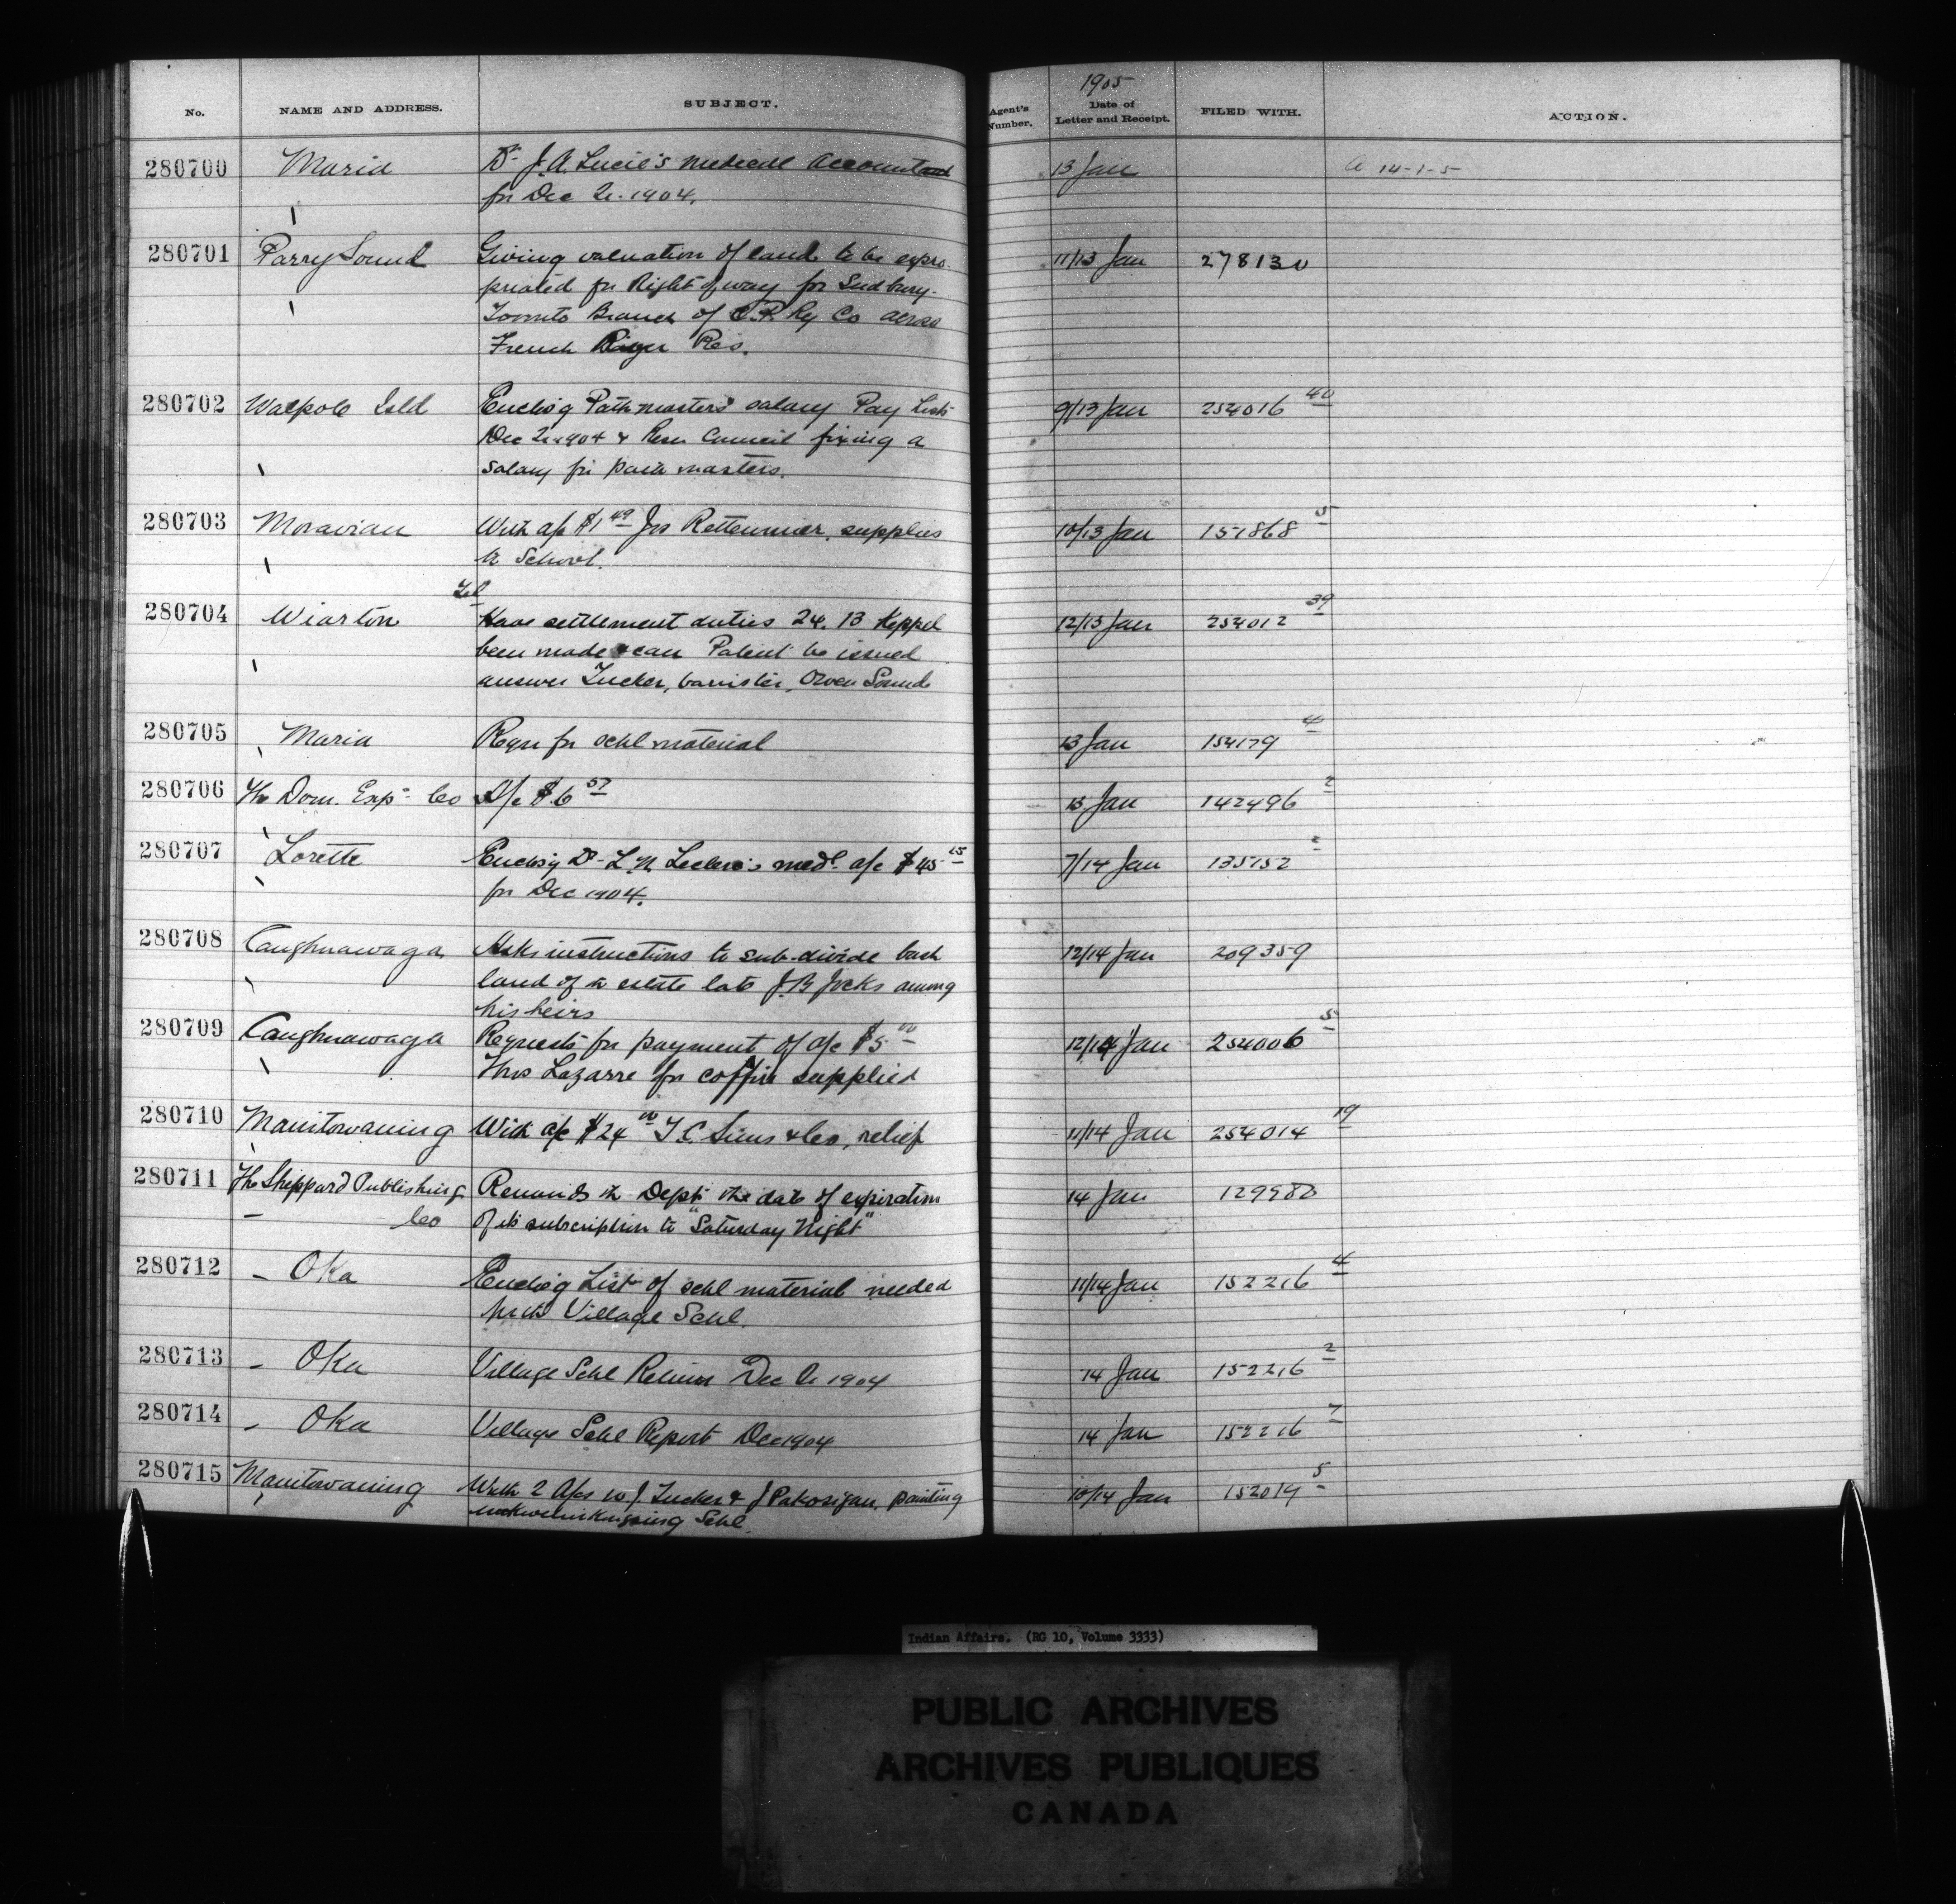 1905
No. NAME AND ADDRESS. SUBJECT. Agent's Number. Date of Letter and Receipt. FILED WITH. ACTION.
280700 Maria Dr J. A. Lucie's medical account 13 Jan a 14-1-5
for Dec Qr. 1904.
280701 Parry Sound Giving valuation of land to be expro- 11/13 Jan 278130
priated for Right of way for Sudbury-
Toronto Branch of C.P. Ry Co across
French River Res.
280702 Walpole Isld Enclos'g Pathmasters salary Pay List 9/13 Jan 254016 40
Dec Qr 1904 & Resn Council fixing a
salary for path masters.
280703 Moravian With a/c $1 49 Jno Rettenmier, supplies 10/13 Jan 151868 5
to School.
Tel
280704 Wiarton Have settlement duties 24. 13 Keppel 12/13 Jan 254012 39
been made & can Patent be issued
answer Tucker, barrister, Owen Sound
280705 Maria Reqn for schl material 13 Jan 154179 4
280706 The Dom. Exp. Co A/c $6 57 13 Jan 142496 2
280707 Lorette Enclos'g Dr L. N. Leclerc's medl a/c $45 15 7/14 Jan 135152 2
for Dec 1904.
280708 Caughnawaga Asks instructions to sub-divide bush 12/14 Jan 209359
land of estate late J. B. Jocks among
his heirs
280709 Caughnawaga Requests for payment of a/c $5 00 12/14 Jan 254006 5
Thos Lazarre for coffin supplied
280710 Manitowaning With a/c $24 00 T. C. Sims & Co, relief 11/14 Jan 254014 19
280711 The Sheppard Publishing Reminds th Dept the date of expiration 14 Jan
Co of its subscription to "Saturday Night"
280712 Oka Enclos'g List of schl material needed 11/14 Jan 152216 4
Village Schl.
280713 Oka Village Schl Return Dec Qr 1904 14 Jan 152216 2
280714 Oka Village Schl Report Dec 1904 14 Jan 152216 7
280715 Manitowaning With 2 A/cs W. J. Tucker & J Pakosigan, painting 10/14 Jan 152019 5
Schl.
Indian Affairs. (RG 10, Volume 3333)
PUBLIC ARCHIVES
ARCHIVES PUBLIQUES
CANADA